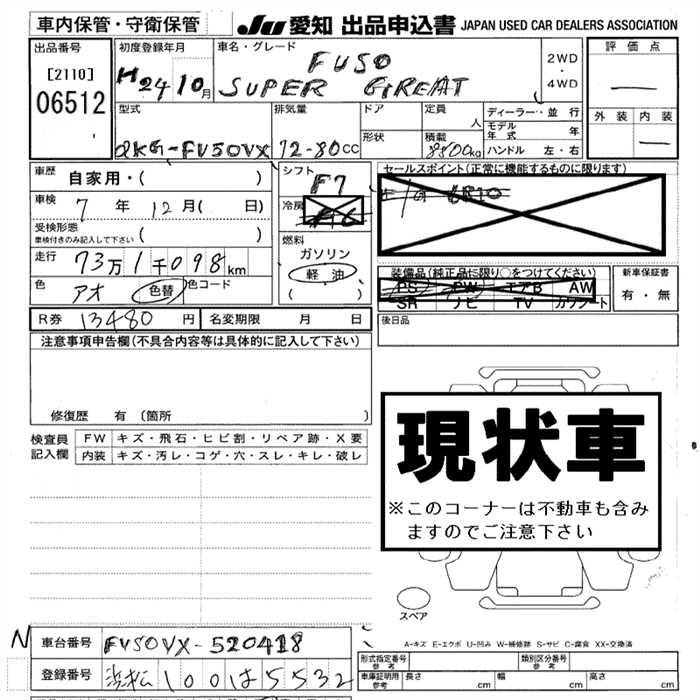 車内保管・守衛保管 JU 愛知 出品申込書 JAPAN USED CAR DEALERS ASSOCIATION
出品番号 初度登録年月 車名・グレード 2WD ・ 4WD 評価点
[2110] H24 10月 FUSO
06512 SUPER GREAT
型式 排気量 ドア 定員 人 ディーラー・並行 外装 内装
形状 積載 モデル年式 年
QKG-FV50VX 12-80CC 8800kg ハンドル 左・右
車歴 自家用・( ) シフト F7 セールスポイント(正常に機能するものに限ります)
車検 7年 12月( 日) 冷房
受検形態 ( ) 燃料
車検付きのみ記入して下さい ガソリン
走行 73万1千098km 軽油 装備品(純正品に限り○をつけてください) 新車保証書
( ) PS PW エアB AW 有・無
色 アオ 色替 色コード SR ナビ TV カワシート
R券 13480円 名変期限 月 日 後日品
注意事項申告欄(不具合内容等は具体的に記入して下さい)
修復歴 有 (箇所 )
現状車
※このコーナーは不動車も含み
ますのでご注意下さい
検査員 FW キズ・飛石・ヒビ割・リペア跡・X要
記入欄 内装 キズ・汚レ・コゲ・穴・スレ・キレ・破レ
スペア
A-キズ E-エクボ U-凹み W-補修跡 S-サビ C-腐食 XX-交換済
N 車台番号 FV50VX-520418
形式指定番号 参考 類別区分番号 参考
登録番号 浜松100は5532
車庫証明用 参考 長さ cm 幅 cm 高さ cm